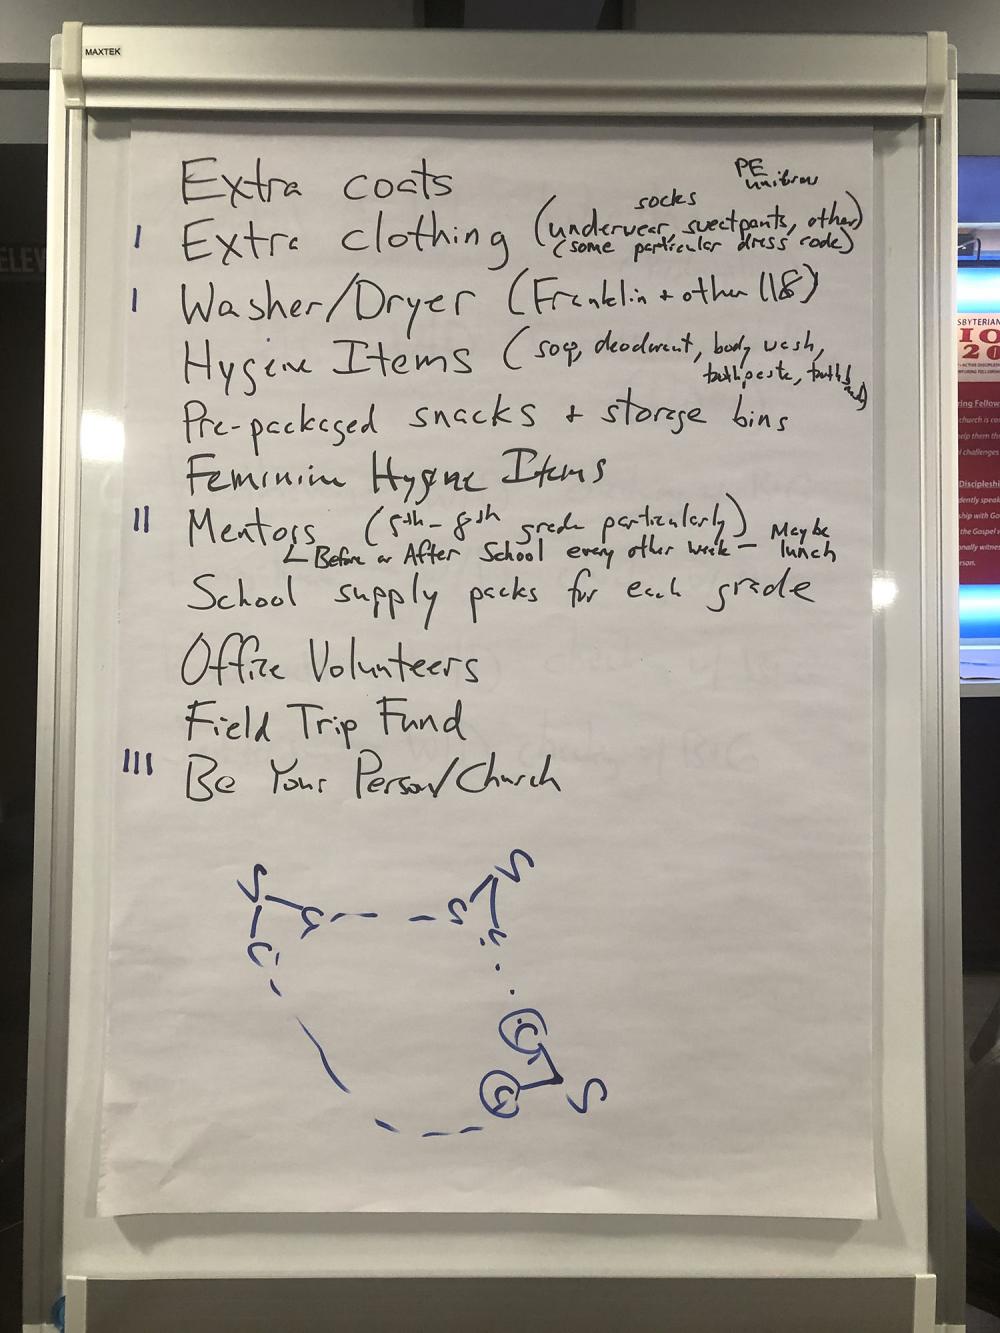 MAXTEK
Extra coats
PE
uniform
socks
I Extra clothing (underwear, sweatpants, other)
(some particular dress code)
I Washer/Dryer (Franklin + other 118)
Hygiene Items (soap, deodorant, body wash,
toothpaste,
Pre-packaged snacks + storage bins
Feminine Hygiene Items
II Mentors (5th-8th grade particularly)
Before or After School every other week - Maybe
lunch
School supply packs for each grade
Office Volunteers
Field Trip Fund
III Be Your Person/Church
S
S
S
C
C
S
ELEV
SBYTERIAN
20
ring Fellow
church is
help them
challenges
Discipleshi
dently speak
ship with Go
the Gospel
onally witnes
rson.